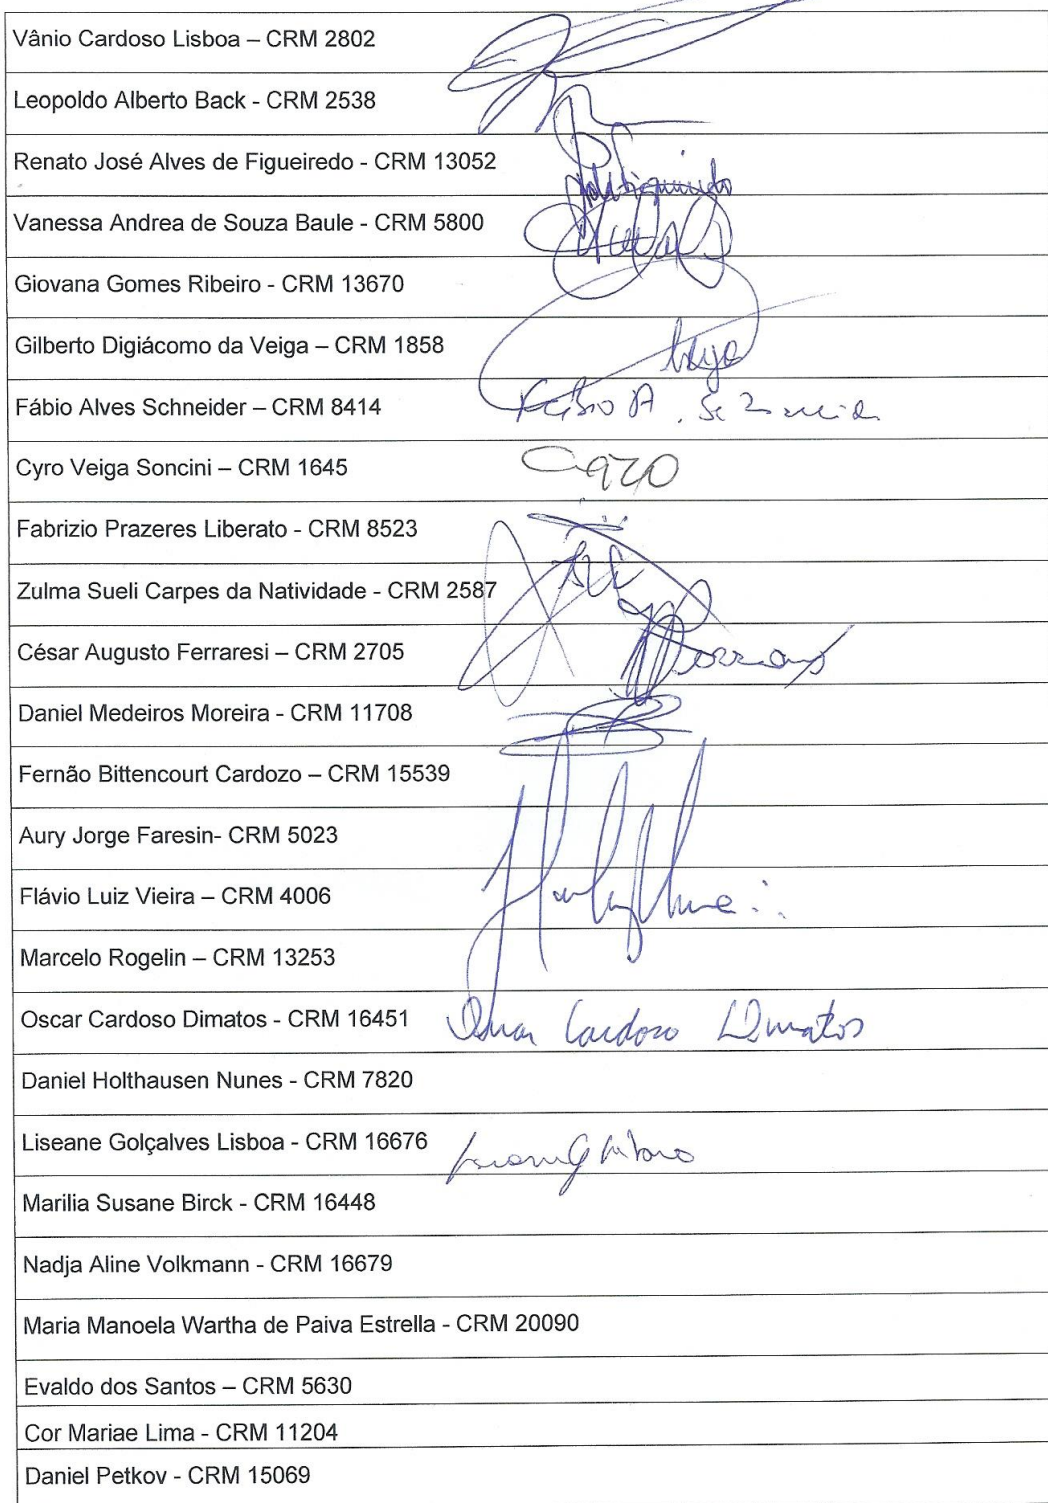 Vânio Cardoso Lisboa – CRM 2802
Leopoldo Alberto Back - CRM 2538
Renato José Alves de Figueiredo - CRM 13052
Vanessa Andrea de Souza Baule - CRM 5800
Giovana Gomes Ribeiro - CRM 13670
Gilberto Digiácomo da Veiga – CRM 1858
Fábio Alves Schneider – CRM 8414 Fábio A.
Cyro Veiga Soncini – CRM 1645
Fabrizio Prazeres Liberato - CRM 8523
Zulma Sueli Carpes da Natividade - CRM 2587
César Augusto Ferraresi – CRM 2705
Daniel Medeiros Moreira - CRM 11708
Fernão Bittencourt Cardozo – CRM 15539
Aury Jorge Faresin- CRM 5023
Flávio Luiz Vieira – CRM 4006
Marcelo Rogelin – CRM 13253
Oscar Cardoso Dimatos - CRM 16451 Oscar Cardoso Dimatos
Daniel Holthausen Nunes - CRM 7820
Liseane Golçalves Lisboa - CRM 16676
Marilia Susane Birck - CRM 16448
Nadja Aline Volkmann - CRM 16679
Maria Manoela Wartha de Paiva Estrella - CRM 20090
Evaldo dos Santos – CRM 5630
Cor Mariae Lima - CRM 11204
Daniel Petkov - CRM 15069